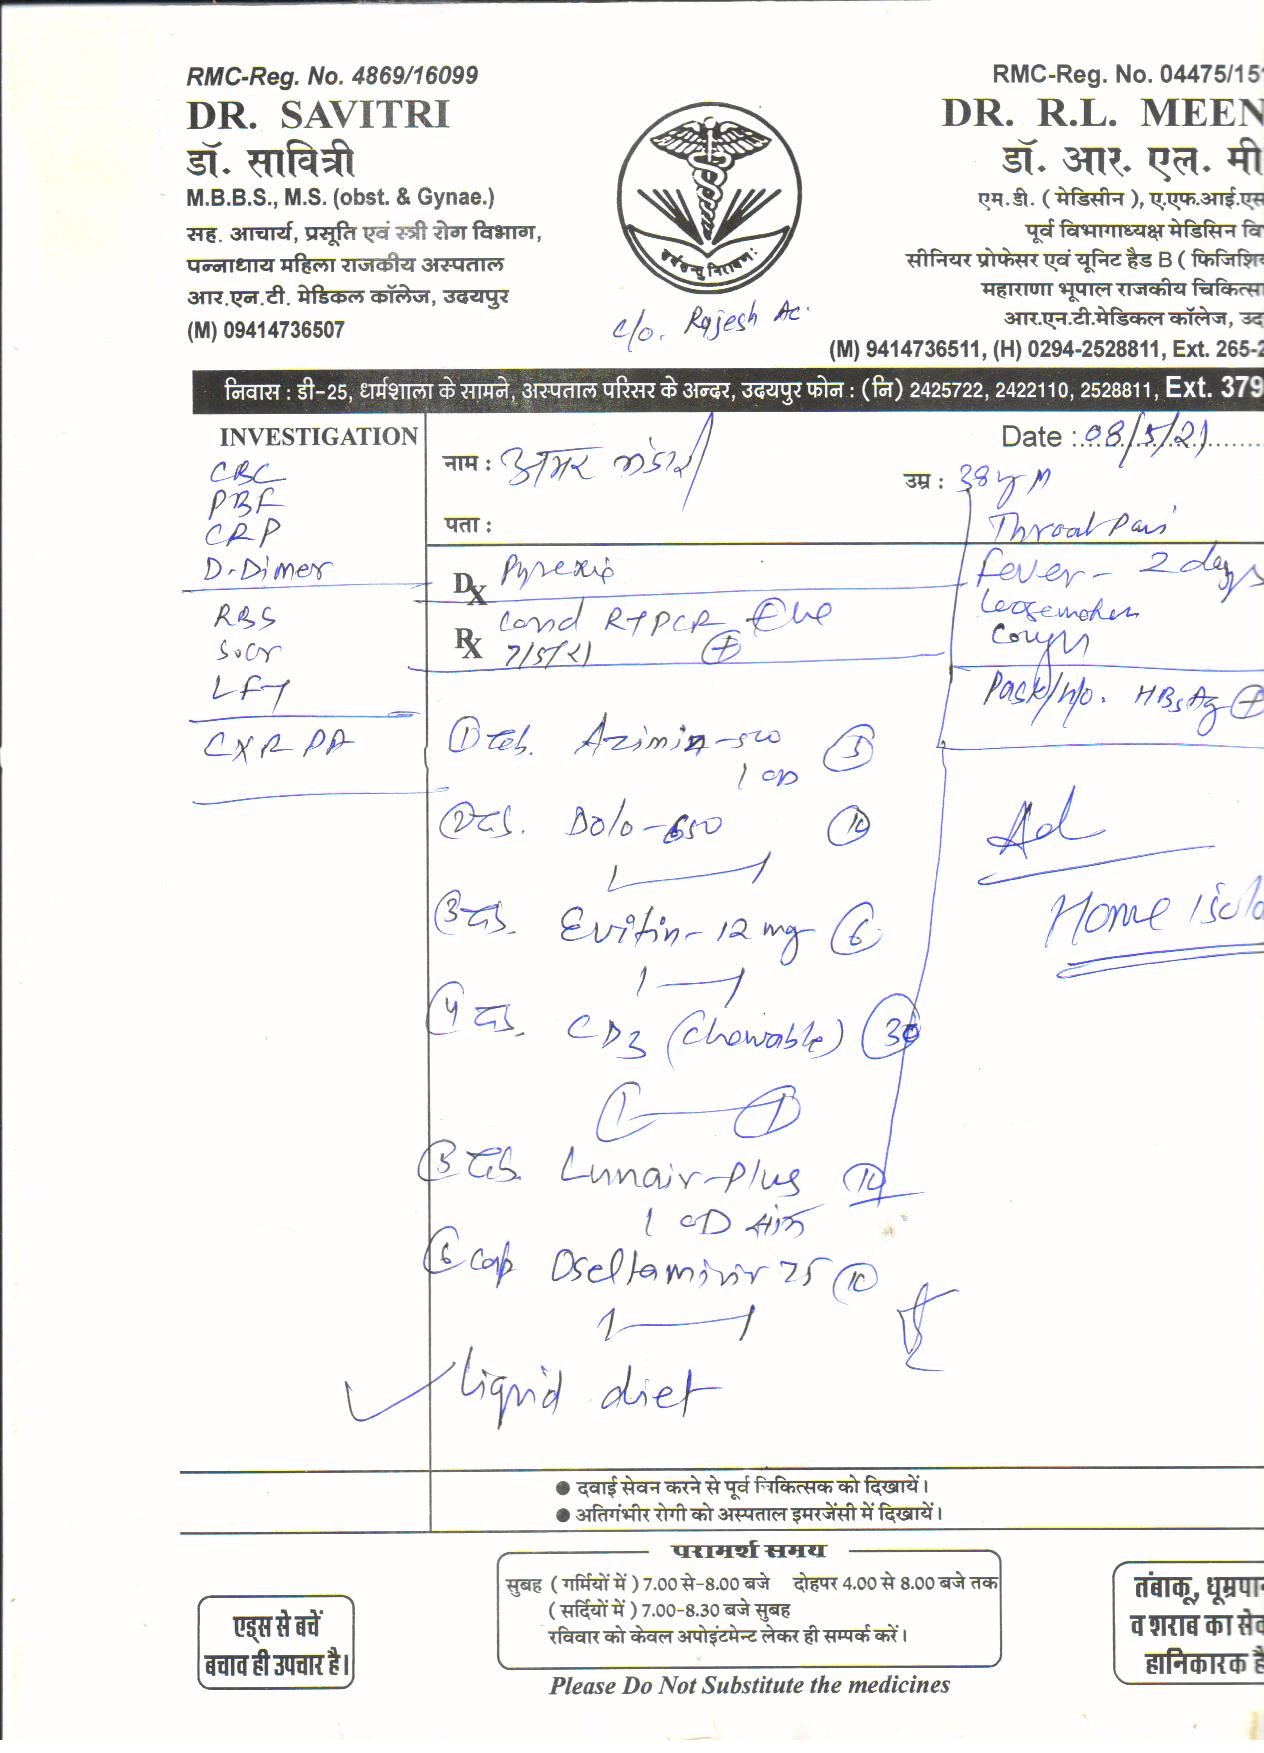 RMC-Reg. No. 4869/16099
DR. SAVITRI
डॉ. सावित्री
M.B.B.S., M.S. (obst. & Gynae.)
सह. आचार्य, प्रसूति एवं स्त्री रोग विभाग,
पन्नाधाय महिला राजकीय अस्पताल
आर.एन.टी. मेडिकल कॉलेज, उदयपुर
(M) 09414736507
सर्वेसन्तु निरामया:
c/o. Rajesh Ac.
RMC-Reg. No. 04475/15
DR. R.L. MEEN
डॉ. आर. एल. मी
एम.डी. ( मेडिसीन ), ए.एफ.आई.एस
पूर्व विभागाध्यक्ष मेडिसिन वि
सीनियर प्रोफेसर एवं यूनिट हैड B ( फिजिशि
महाराणा भूपाल राजकीय चिकित्सा
आर.एन.टी.मेडिकल कॉलेज, उद
(M) 9414736511, (H) 0294-2528811, Ext. 265-2
निवास : डी-25, धार्मशाला के सामने, अस्पताल परिसर के अन्दर, उदयपुर फोन : (नि) 2425722, 2422110, 2528811, Ext. 379
INVESTIGATION
CBC
PBF
CRP
D-Dimer
RBS
S.Cr
LFT
CXR PA
नाम : अमर
Date : 08/5/21
उम्र : 38 y M
पता :
Throat Pain
Fever - 2 days
Cough
Past/H/o. HBsAg +
DX Pyrexia
RX Covid RTPCR +ve
7/5/21 +
① Tab. Azimin-500 5
1 OD
② Tab. Dolo-650 10
1 — 1
③ Tab. Evitin-12 mg 6
1 — 1
④ Tab. CD3 (Chewable) 30
1 — 1
⑤ Tab. Lunair-Plus 10
1 OD सांय
⑥ Cap Oseltamivir 75 10
1 — 1
Liquid diet
Ad
Home Isola
● दवाई सेवन करने से पूर्व चिकित्सक को दिखायें।
● अतिगंभीर रोगी को अस्पताल इमरजेंसी में दिखायें।
परामर्श समय
सुबह ( गर्मियों में ) 7.00 से-8.00 बजे दोहपर 4.00 से 8.00 बजे तक
( सर्दियों में ) 7.00-8.30 बजे सुबह
रविवार को केवल अपोइंटमेन्ट लेकर ही सम्पर्क करें।
एड्स से बचें
बचाव ही उपचार है।
तंबाकू, धूम्रपान
व शराब का सेव
हानिकारक है
Please Do Not Substitute the medicines